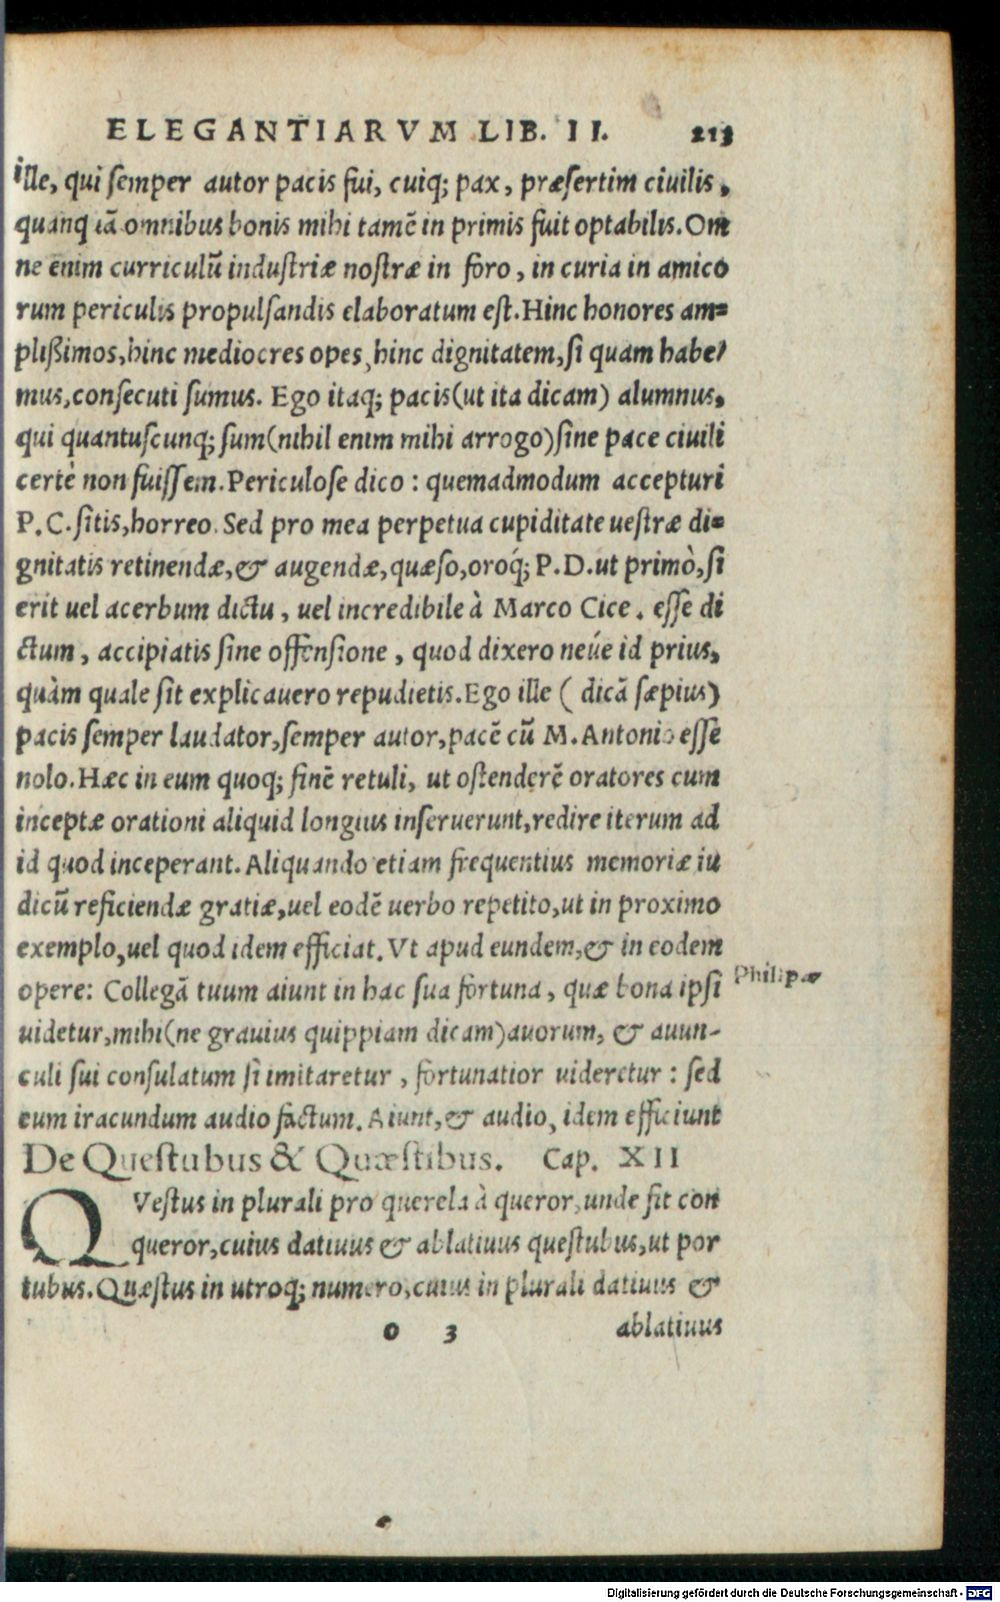 ELEGANTIARVM LIB. II. 213
ille, qui semper autor pacis fui, cuiq; pax, præsertim ciuilis,
quanq iã omnibus bonis mihi tamẽ in primis fuit optabilis. Om
ne enim curriculũ industriæ nostræ in foro, in curia in amico
rum periculis propulsandis elaboratum est. Hinc honores am=
plißimos, hinc mediocres opes, hinc dignitatem, si quam habe/
mus, consecuti sumus. Ego itaq; pacis (ut ita dicam) alumnus,
qui quantuscunq; sum (nihil enim mihi arrogo) sine pace ciuili
certè non fuissem. Periculose dico : quemadmodum accepturi
P. C. sitis, horreo. Sed pro mea perpetua cupiditate uestræ di=
gnitatis retinendæ, & augendæ, quæso, oroq́; P. D. ut primò, si
erit uel acerbum dictu, uel incredibile à Marco Cice. esse di
ctum, accipiatis sine offensione, quod dixero neúe id prius,
quàm quale sit explicauero repudietis. Ego ille ( dicã sæpius)
pacis semper laudator, semper autor, pacẽ cũ M. Antonio esse
nolo. Hæc in eum quoq; finẽ retuli, ut ostenderẽ oratores cum
inceptæ orationi aliquid longius inseruerunt, redire iterum ad
id quod inceperant. Aliquando etiam frequentius memoriæ iu
dicũ reficiendæ gratiæ, uel eodẽ uerbo repetito, ut in proximo
exemplo, uel quod idem efficiat. Vt apud eundem, & in eodem
opere: Collegã tuum aiunt in hac sua fortuna, quæ bona ipsi
uidetur, mihi (ne grauius quippiam dicam) auorum, & auun-
culi sui consulatum si imitaretur, fortunatior uideretur : sed
eum iracundum audio factum. Aiunt, & audio, idem efficiunt
Philip.
De Questubus & Quæstibus. Cap. XII
QVestus in plurali pro querela à queror, unde fit con
queror, cuius datiuus & ablatiuus questubus, ut por
tubus. Quæstus in utroq; numero, cuius in plurali datiuus &
o 3 ablatiuus
Digitalisierung gefördert durch die Deutsche Forschungsgemeinschaft - DFG